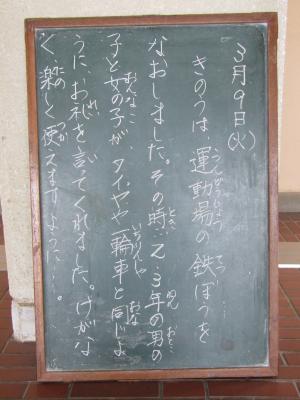 3月9日(火)
きのうは、運動場の鉄ぼうを
なおしました。その時、2、3年の男の
子と女の子が、タイヤや一輪車と同じよ
うに、お礼を言ってくれました。けがな
く、楽しく使えますように…。